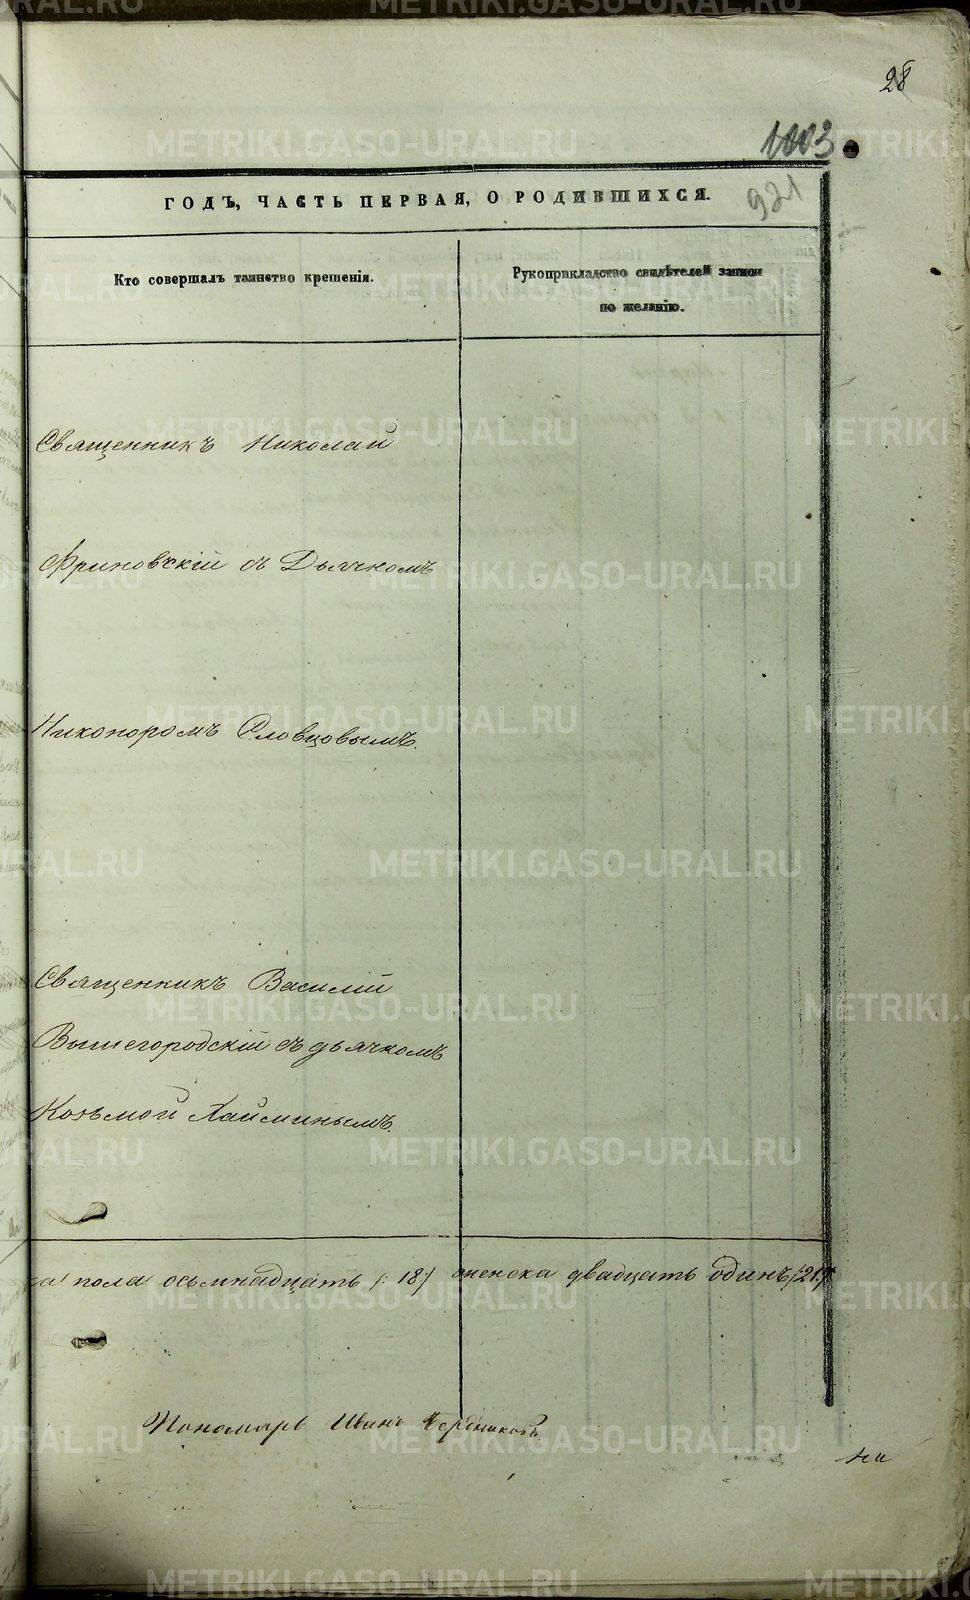 28
1003
921
ГОДЪ, ЧАСТЬ ПЕРВАЯ, О РОДИВШИХСЯ.
Кто совершалъ таинство крещенія.
Рукоприкладство свидѣтелей записи
по желанію.
Священникъ Николай
Фриновскій съ Дьячкомъ
Никоноромъ Словцовымъ.
Священникъ Василій
Вышегородскій съ дьячкомъ
Козьмой Хайминымъ.
пола осьмнадцать /:18:/ женска двадцать одинъ /:21:/
Пономарь Иванъ
METRIKI.GASO-URAL.RU